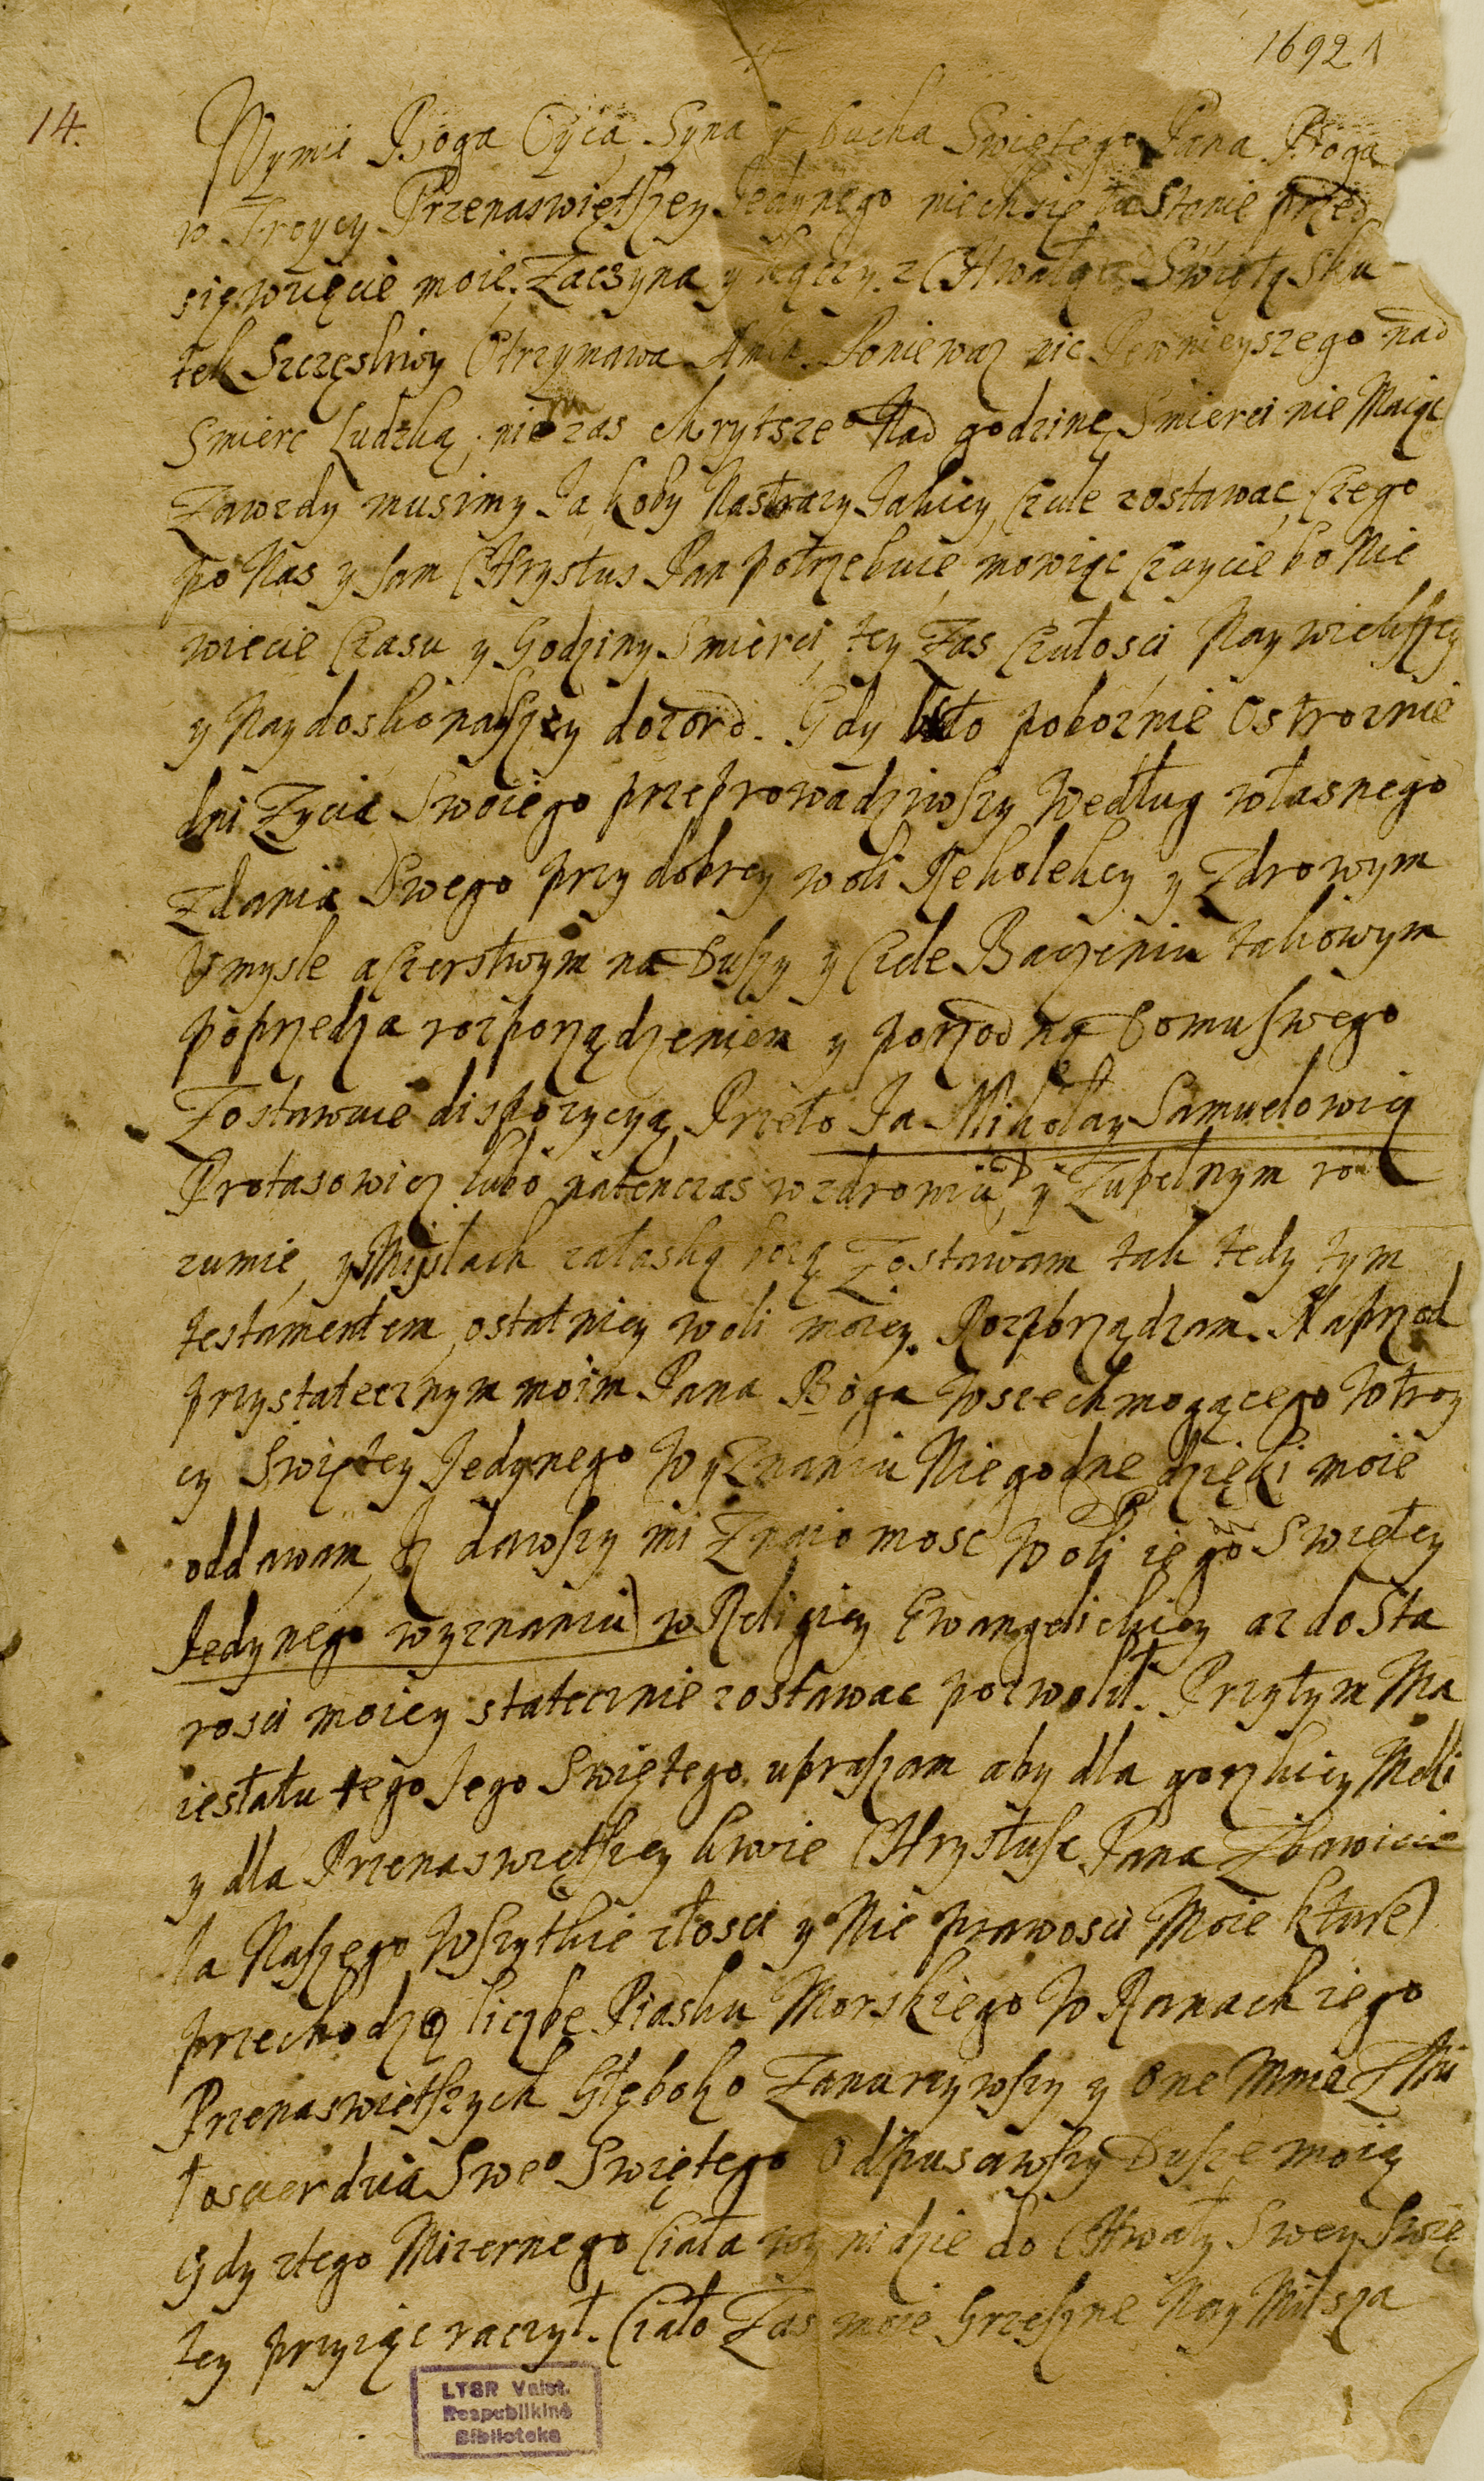 1692
14.
Wymie Boga Oyca, Syna y Ducha Swiętego Pana Boga
w Troycy Przenaswiętszey Jedynego niechsię to Stanie przed
sięwzięcie moie, Zaczyna y kączy z Chwałą Swiętą Sku
tek Szczęsliwy Otrzymawa Amen. Poniewaz nic Pewnieyszego nad
Smierc Ludzką, nic zas chrytsze° Nad godzinę Smierci nie Maiąc
Zawzdy musimy Ja koby Nastrazy Jakiey, czule zostawac, czego
po Nas y sam CHrystus Pan potrzebuie, mowiąc czuycie bo Nie
wiecie Czasu y Godziny Smierci, tey Zas czułosci Naywiekszey
y Naydoskonalszey dozord. Gdy kto poboznie Ostroznie
dni Zycia Swoiego przeprowadziwszy Według własnego
Zdania Swego przy dobrey woli Rekolekcy y Zdrowym
Vmysle a czerstwym na Duszy y Ciele Baczeniu takowym
poprzedza rozporządzeniem y porzodną Domu swego
Zostawuie dispozycyą, Przeto Ja Mikołay Samuelowicz
Protasowicz lubo natenczas w zdrowiu y Zupełnym roz
zumie, y Mysłach załaską bozą Zostawam tak tedy tym
testamentem ostatniey woli moiey Rozporządzam. Naprzod
przystatecznym moim Pana Boga Wszechmogącego Wtroy
cy Swiętey Jedynego Wyznaniu Niegodne dzięki moie
oddawam, Jz dawszy mi Znaiomosc Woli iego Swiętey
Jedynego wyznaniu) w Religiey Ewangelickiey az do Sta
rosci moiey statecznie zostawac pozwolił. Przytym Ma
iestatu tego Jego Swiętego upraszam aby dla gorzkiey Męki
y dla Przenaswiętszey krwie CHrystusa Pana Zbawicie
la Naszego Wszytkie złosci y Nie prawosci Moie ktore)
przechodzą liczbe Piasku Morskiego W Ranach iego
Przenaswiętszych Głęboko Zanurzywszy y One Mnie Z Mi
łosierdzia Swe° Swiętego Odpusciwszy Duszę moią
Gdy ztego Mizernego Ciała wynidzie do CHwały Swey Swię
tey przyiąc raczył. Ciało Zas moie Grzeszne Nay Milsza
LTSR Valst.
Respublikinė
Biblioteka